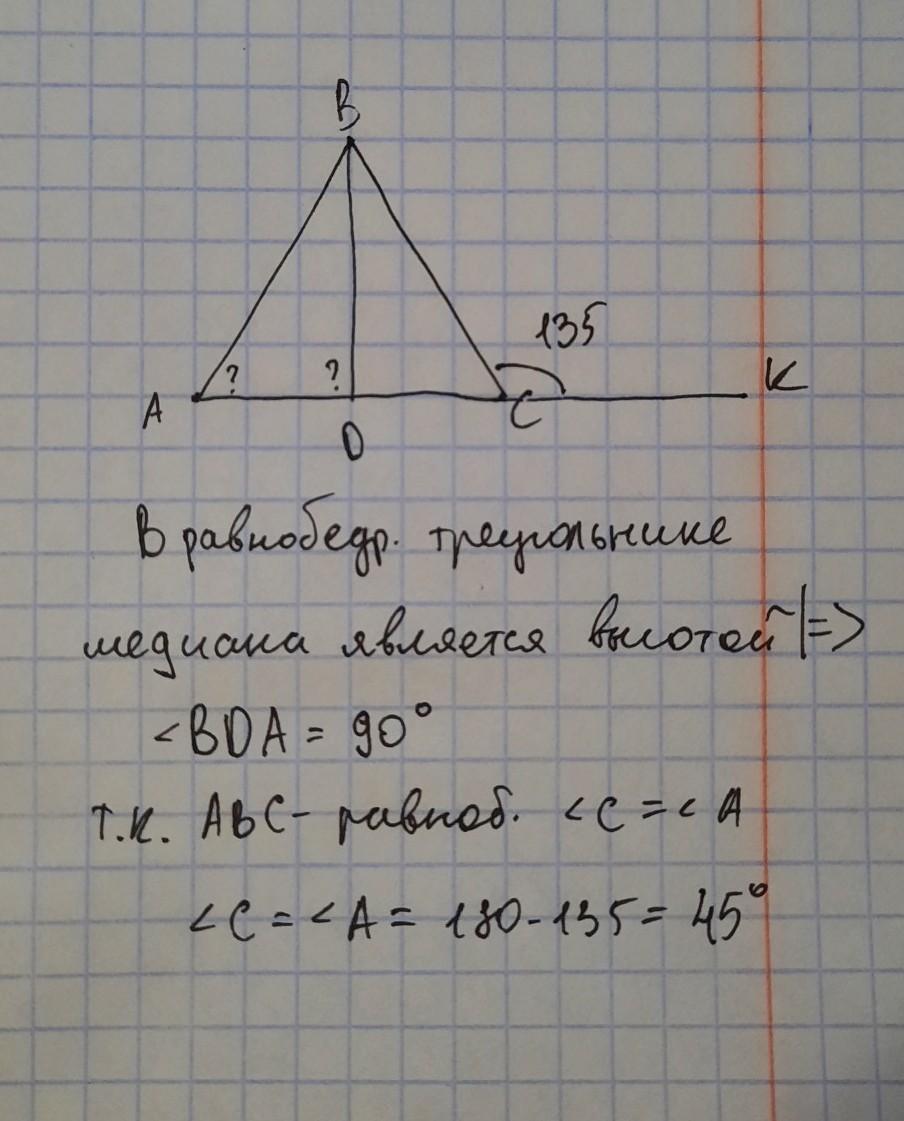 B
135
? ?
A D C K
В равнобедр. треугольнике
медиана является высотой |=>
∠BDA = 90°
т.к. ABC - равноб. ∠C = ∠A
∠C = ∠A = 180 - 135 = 45°